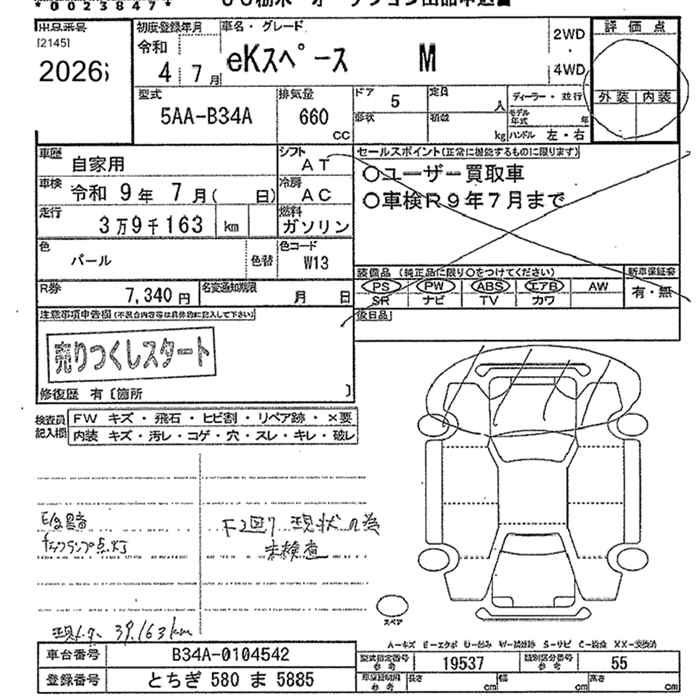 *00238471*
出品番号 初度登録年月 車名・グレード 2WD・4WD 評価点
[2145] 2026 令和 4年 7月 eKスペース M 外装 内装
型式 5AA-B34A 排気量 660 CC ドア 5 定員 人 ディーラー・並行
形状 積数 kg モデル年式 年 ハンドル 左・右
車歴 自家用 シフト AT セールスポイント(正常に機能するものに限ります)
車検 令和 9年 7月( 日) 冷房 AC ○ユーザー買取車
走行 3万9千163 km 燃料 ガソリン ○車検R9年7月まで
色 パール 色替 色コード W13
装備品 (純正品に限り○をつけてください) 新車保証書
R券 7,340円 名変通知期限 月 日 PS PW ABS エアB AW 有・無
SR ナビ TV カワ
注意事項申告欄(不具合内容等は具体的に記入して下さい) 後日品
売りつくしスタート
修復歴 有〔箇所 〕
検査員記入欄 FW キズ・飛石・ヒビ割・リペア跡・×要
内装 キズ・汚レ・コゲ・穴・スレ・キレ・破レ
E/G異音
チェックランプ点灯
F廻り現状の為
未検査
現メーター 39,163km
スペア
A=キズ E=エクボ U=凹み W=補修跡 S=サビ C=腐食 XX=交換済
車台番号 B34A-0104542 型式指定番号参考 19537 類別区分番号参考 55
登録番号 とちぎ 580 ま 5885 車庫証明用参考 長さ cm 幅 cm 高さ cm